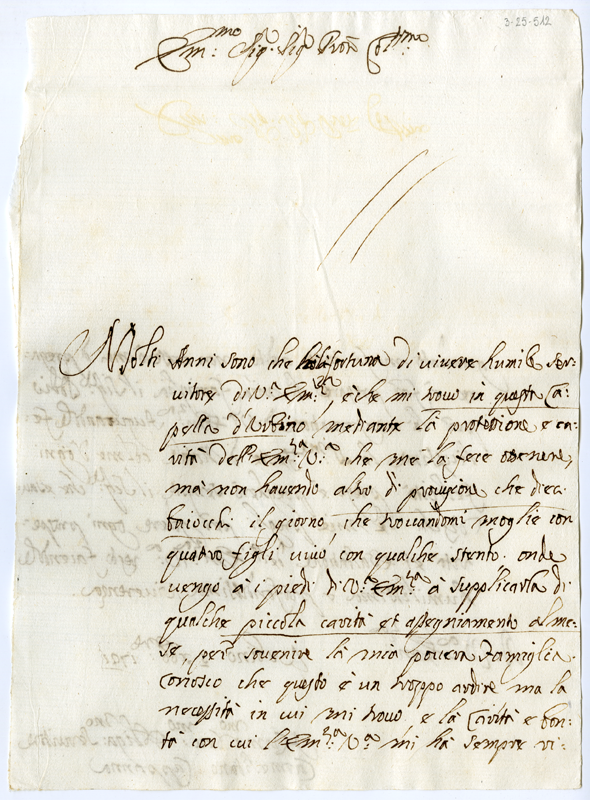 3-25-512
Em:mo Sig.r Sig.r Pron Col:mo
Molti Anni sono che hò la fortuna di vivere humil ser-
vitore di V.a Em:za, e che mi trovo in questa Ca-
pella d'Urbino mediante la protetione e ca-
rità dell' Em:za V.a che me la fece ottenere,
mà non havendo altro di provigione che dieci
baiocchi il giorno, che trovandomi moglie con
quatro figli vivo, con qualche stento. onde
vengo à i piedi di V.a Em:za à supplicarla di
qualche piccola carità et assegniamento al me-
se, per sovenire là mia povera Famiglia.
Conosco che questo è un troppo ardire ma la
necessità in cui mi trovo, e la Carità e bon-
tà con cui l'Em:za V.a mi hà sempre vi-